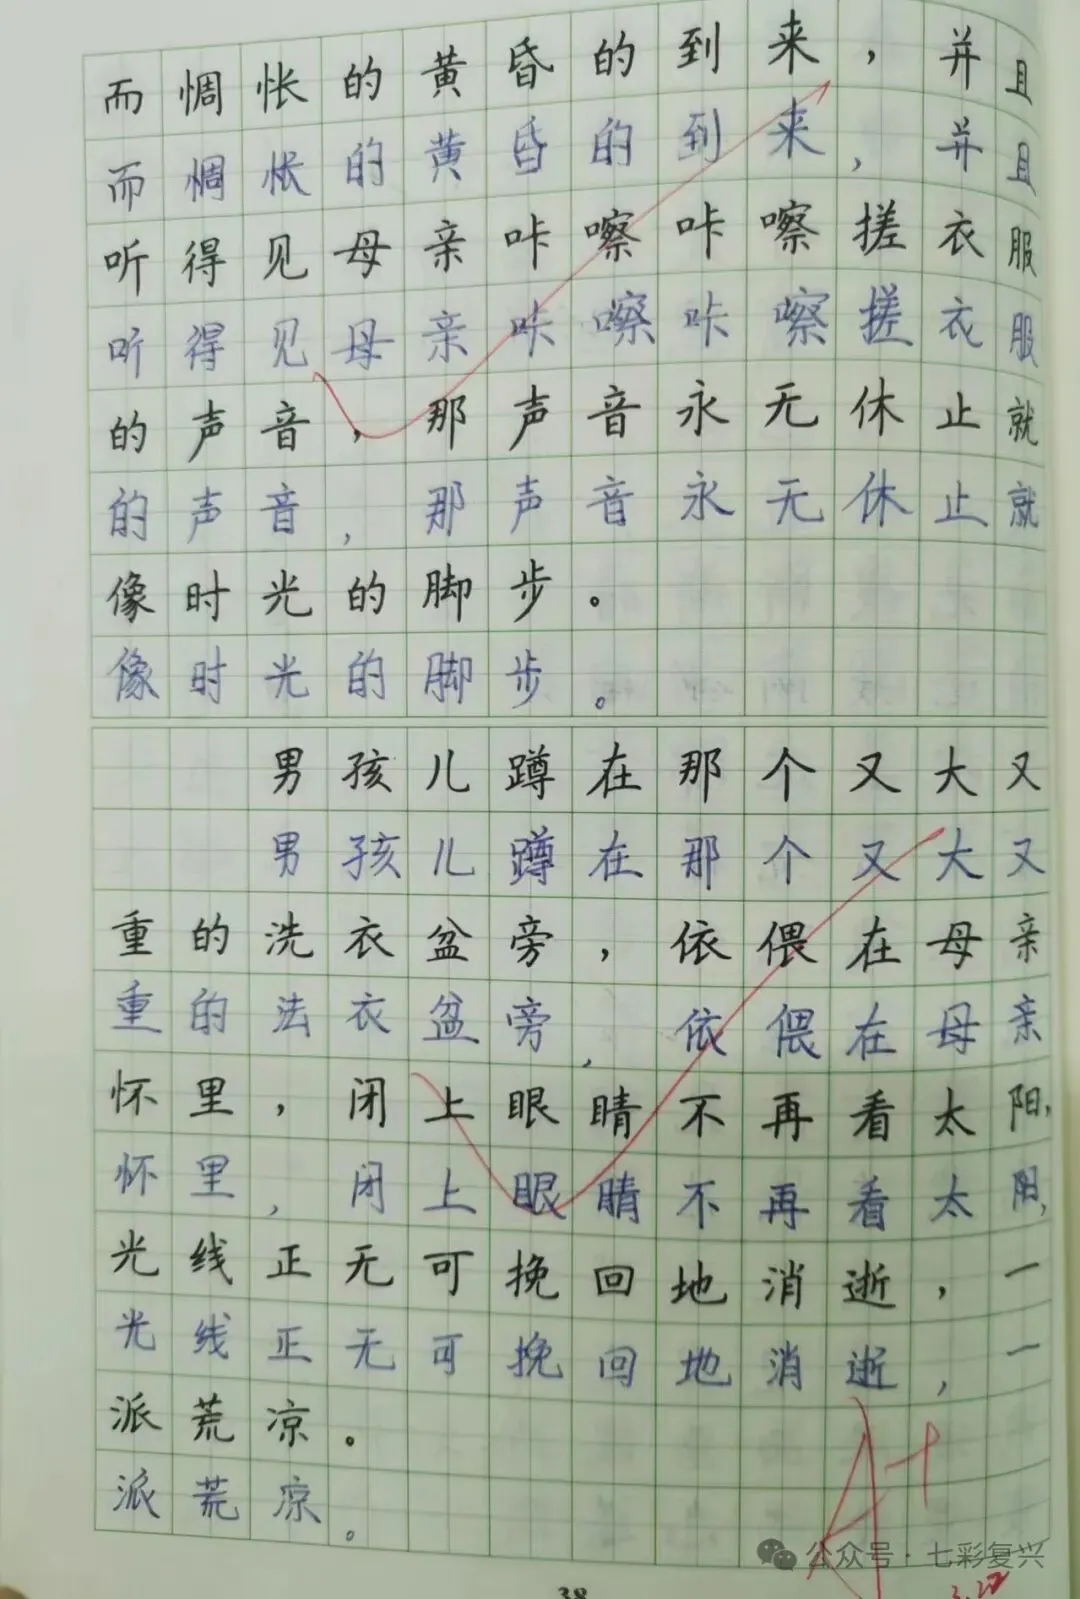 而惆怅的黄昏的到来，并且
而惆怅的黄昏的到来，并且
听得见母亲咔嚓咔嚓搓衣服
听得见母亲咔嚓咔嚓搓衣服
的声音，那声音永无休止就
的声音，那声音永无休止就
像时光的脚步。
像时光的脚步。
男孩儿蹲在那个又大又
男孩儿蹲在那个又大又
重的洗衣盆旁，依偎在母亲
重的法衣盆旁，依偎在母亲
怀里，闭上眼睛不再看太阳，
怀里，闭上眼睛不再看太阳，
光线正无可挽回地消逝，一
光线正无可挽回地消逝，一
派荒凉。
派荒凉。
A+
公众号·七彩复兴
38